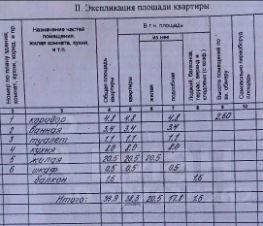 II. Экспликация площади квартиры
Номер по плану здания, комнат, кухни, корид. и пр.
Назначение частей помещения: жилая комната, кухня, и т.п.
Общая площадь квартиры
В т.ч. площадь
квартиры
из них
жилая
подсобная
Высота помещений по вн. обмеру
Самовольно переоборуд. площадь
1 коридор 4.8 4.8 4.8 2.60
2 ванная 3.4 3.4 3.4
3 туалет 1.1 1.1 1.1
4 кухня 8.0 8.0
5 жилая 20.5 20.5 20.5
6 шкаф 0.5 0.5 0.5
балкон 1.6 1.6
Итого: 39.9 38.3 20.5 17.8 1.6